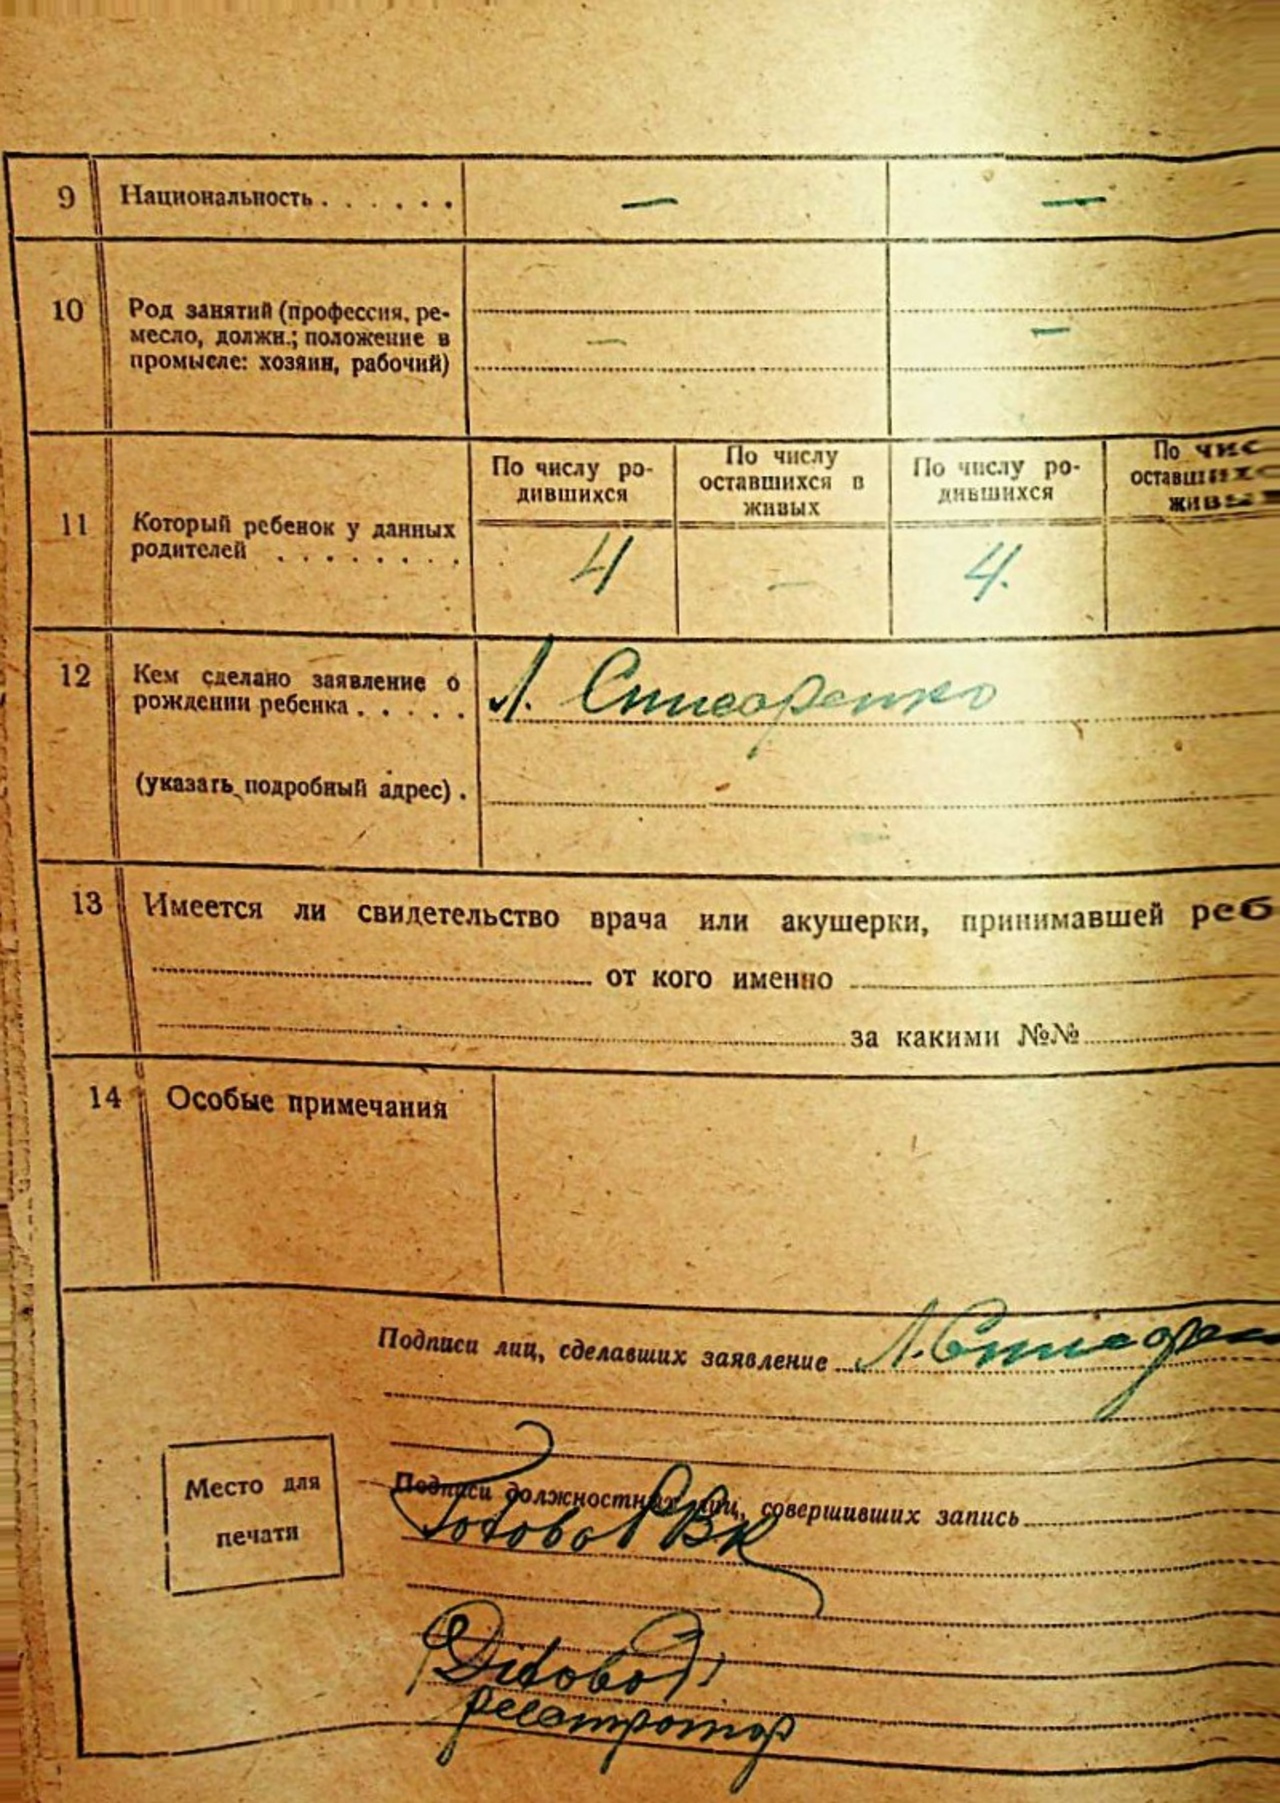 9 Национальность . . . . . . — —
10 Род занятий (профессия, ре-
месло, должн.; положение в — —
промысле: хозяин, рабочий)
По числу ро-
дившихся
По числу
оставшихся в
живых
По числу ро-
дившихся
По чис
оставшихс
живы
11 Который ребенок у данных
родителей . . . . . . . . 4 — 4.
12 Кем сделано заявление о
рождении ребенка . . . . . Л.
(указать подробный адрес) .
13 Имеется ли свидетельство врача или акушерки, принимавшей реб
от кого именно
за какими №№
14 Особые примечания
Подписи лиц, сделавших заявление Л.
Место для
печати
Подписи должностных лиц, совершивших запись